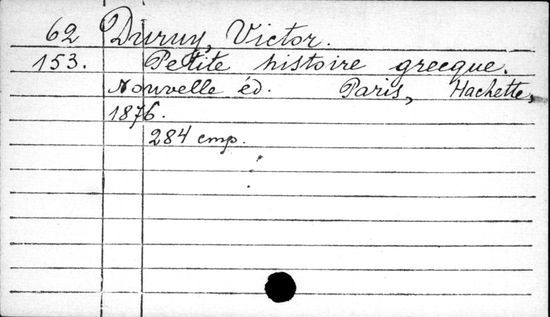 62 Duruy, Victor.
153. Petite histoire grecque.
Nouvelle éd. Paris, Hachette,
1876.
284 стр.